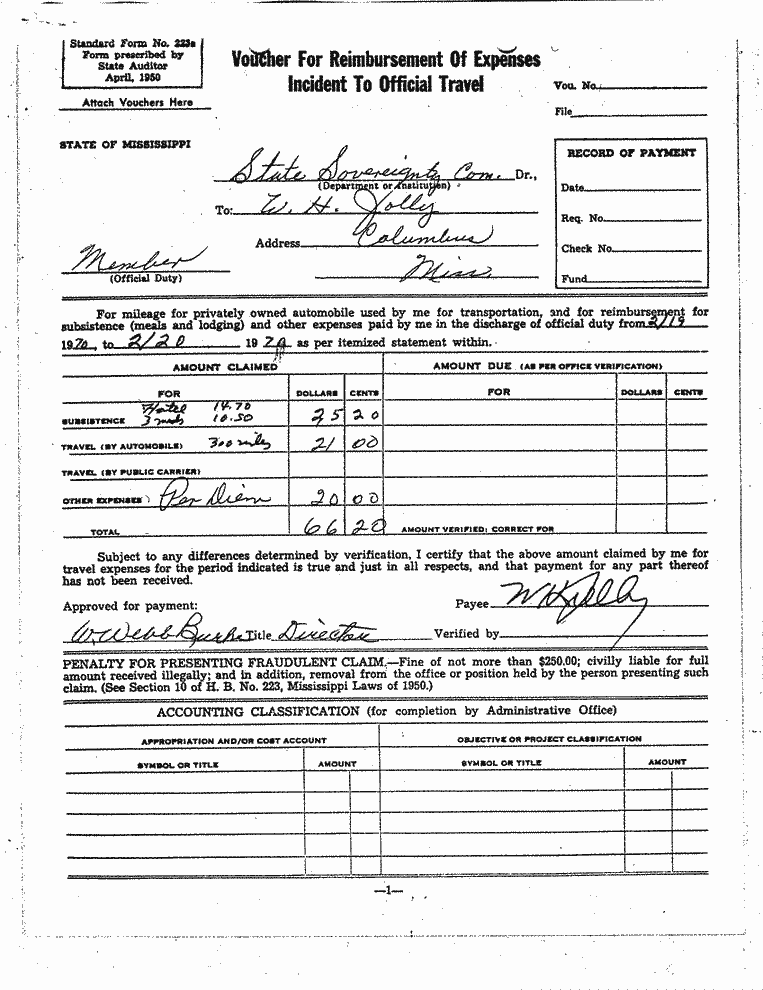 Standard Form No. 223a
Form prescribed by
State Auditor
April, 1950
Attach Vouchers Here
Voucher For Reimbursement Of Expenses
Incident To Official Travel
Vou. No.
File
STATE OF MISSISSIPPI
State Sovereignty Com. Dr.,
(Department or Institution)
To: W. H. Jolly
Address Columbus
Miss
Member
(Official Duty)
RECORD OF PAYMENT
Date
Req. No.
Check No.
Fund
For mileage for privately owned automobile used by me for transportation, and for reimbursement for
subsistence (meals and lodging) and other expenses paid by me in the discharge of official duty from 2/19
1970, to 2/20 1970 as per itemized statement within.
AMOUNT CLAIMED AMOUNT DUE (AS PER OFFICE VERIFICATION)
FOR DOLLARS CENTS FOR DOLLARS CENTS
Hotel 14.70
SUBSISTENCE 3 meals 10.50 25 20
TRAVEL (BY AUTOMOBILE) 300 miles 21 00
TRAVEL (BY PUBLIC CARRIER)
OTHER EXPENSES) Per Diem 20 00
TOTAL 66 20 AMOUNT VERIFIED; CORRECT FOR
Subject to any differences determined by verification, I certify that the above amount claimed by me for
travel expenses for the period indicated is true and just in all respects, and that payment for any part thereof
has not been received.
Approved for payment:
Payee W H Jolly
W. Webb Burke Title Director Verified by
PENALTY FOR PRESENTING FRAUDULENT CLAIM.—Fine of not more than $250.00; civilly liable for full
amount received illegally; and in addition, removal from the office or position held by the person presenting such
claim. (See Section 10 of H. B. No. 223, Mississippi Laws of 1950.)
ACCOUNTING CLASSIFICATION (for completion by Administrative Office)
APPROPRIATION AND/OR COST ACCOUNT OBJECTIVE OR PROJECT CLASSIFICATION
SYMBOL OR TITLE AMOUNT SYMBOL OR TITLE AMOUNT
—1—